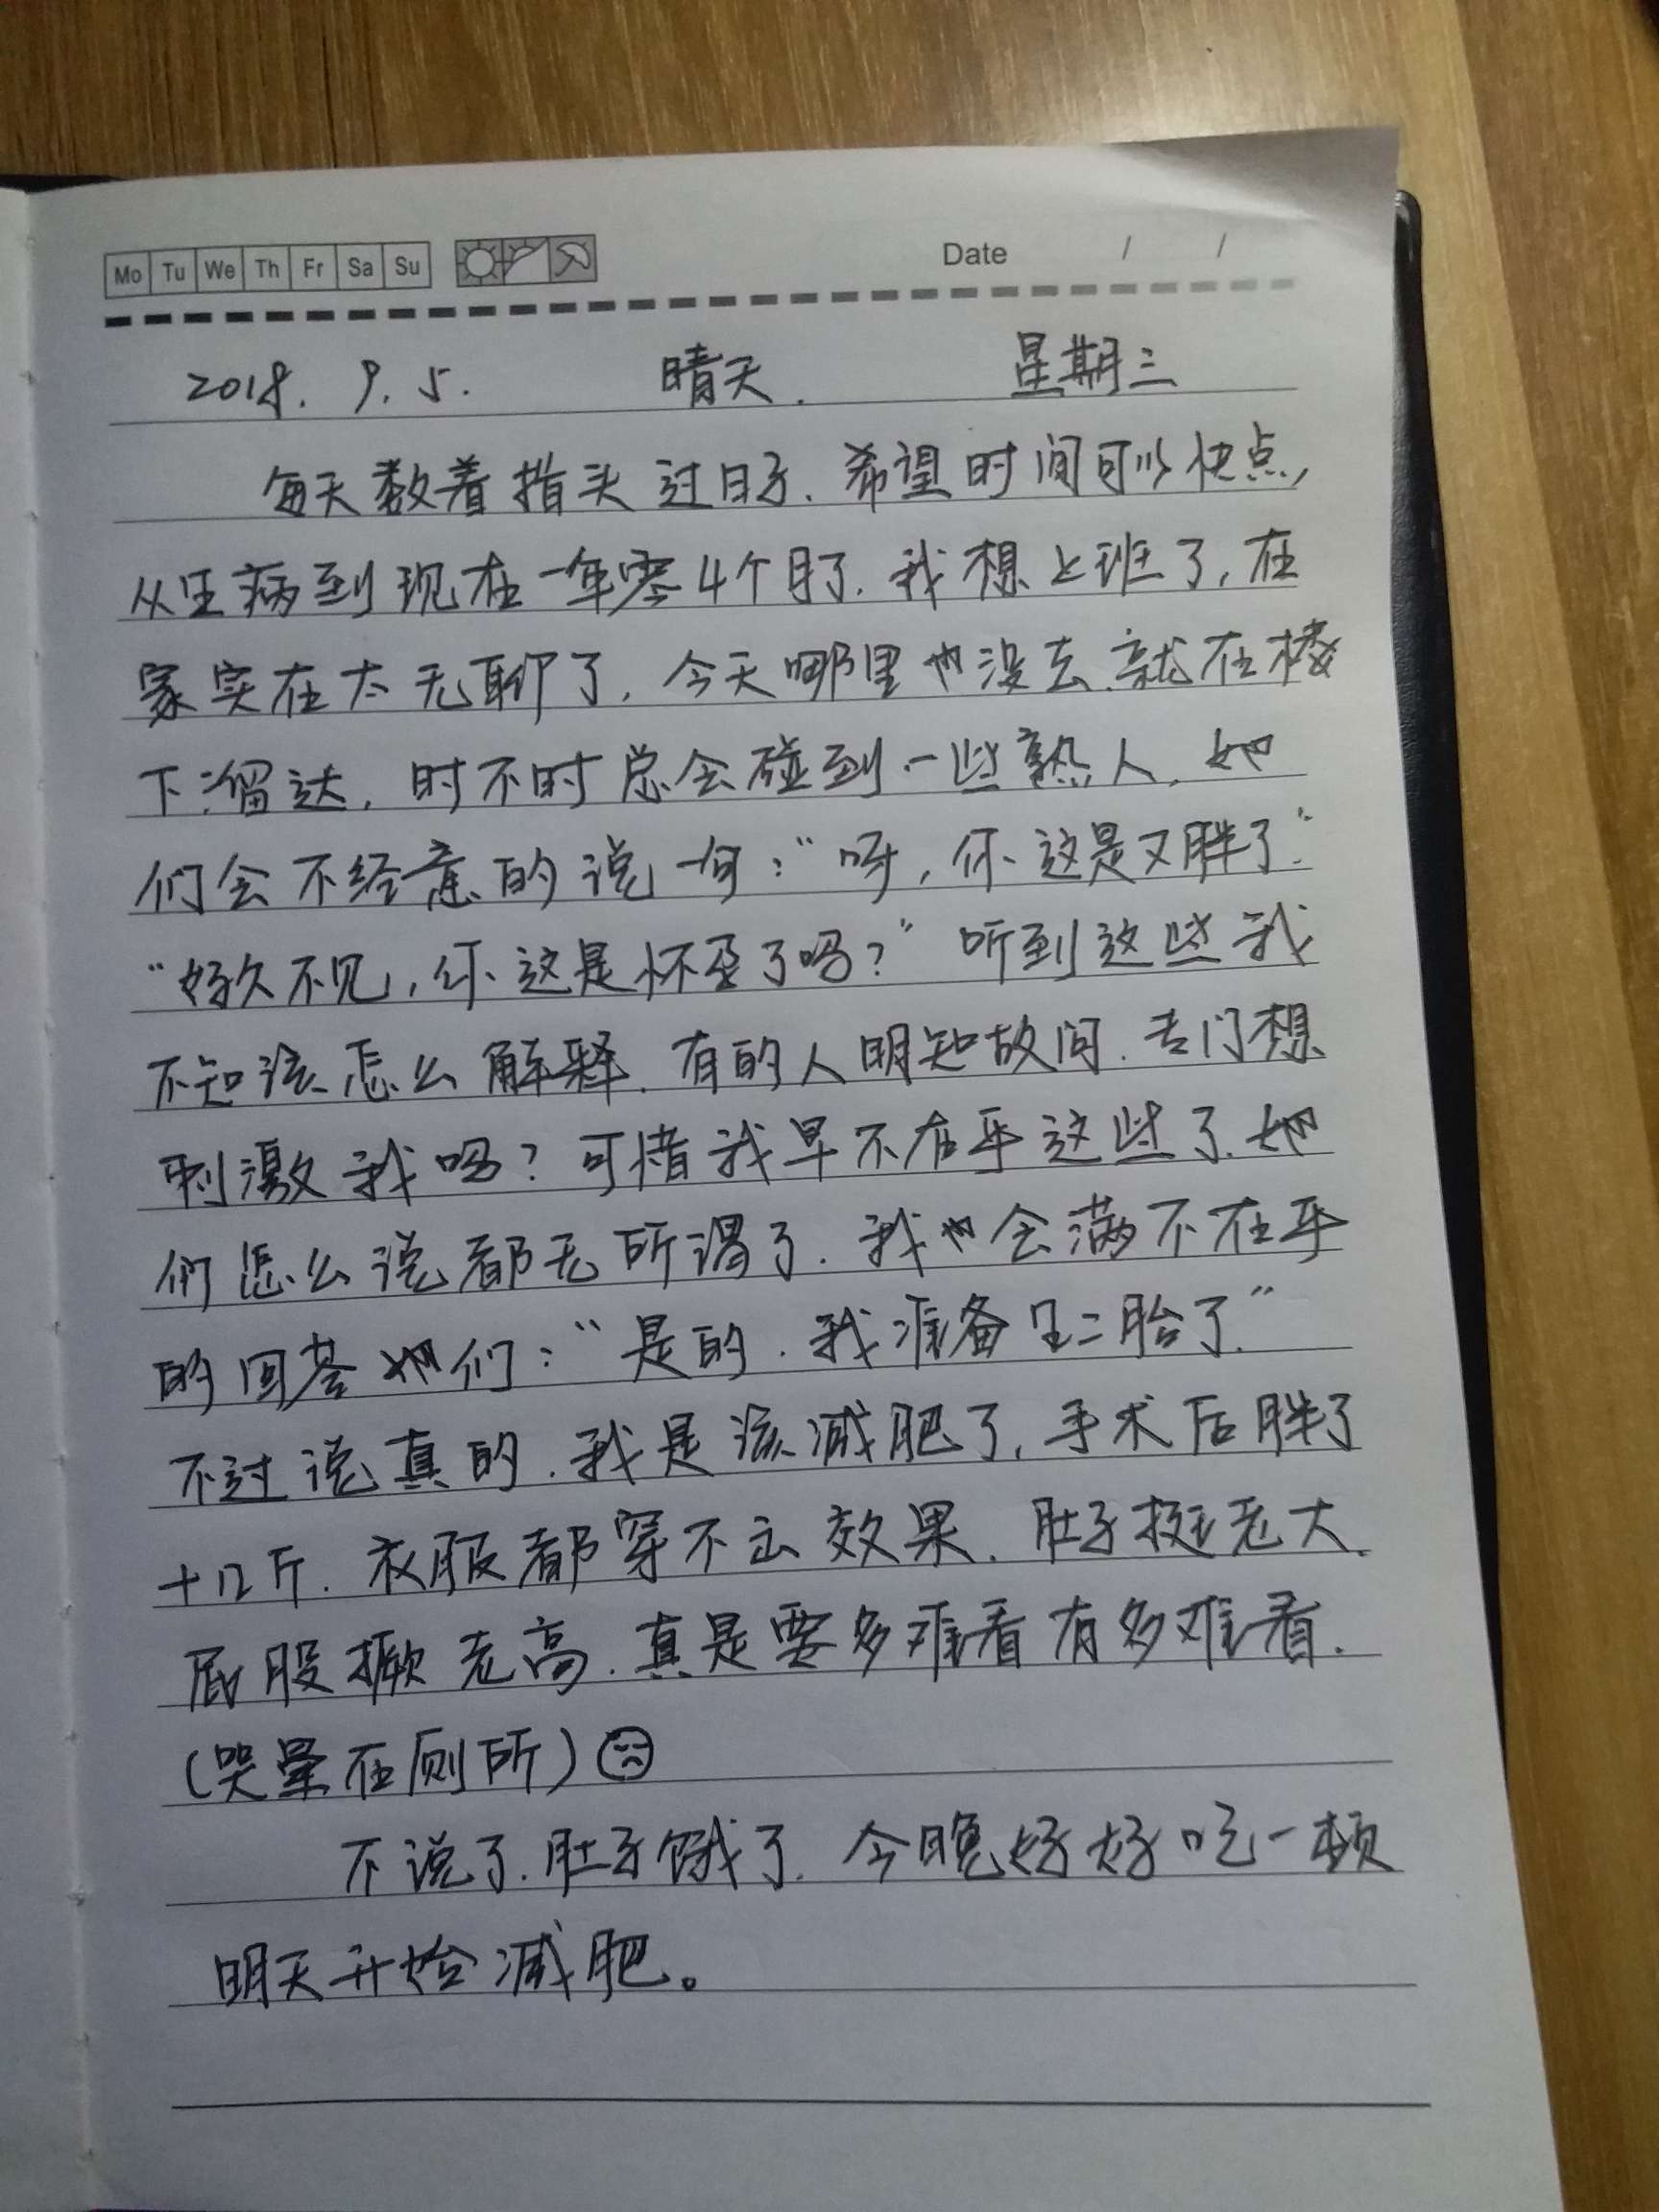 Mo Tu We Th Fr Sa Su Date / /
2018. 9. 5. 晴天. 星期三
每天数着指头过日子.希望时间可以快点,
从生病到现在一年零4个月了.我想上班了,在
家实在太无聊了,今天哪里也没去.就在楼
下溜达,时不时总会碰到一些熟人,她
们会不经意的说一句:“呀,你这是又胖了.”
“好久不见,你这是怀孕了吗?”听到这些我
不知该怎么解释.有的人明知故问.专门想
刺激我吗?可惜我早不在乎这些了.她
们怎么说都无所谓了.我也会满不在乎
的回答她们:“是的.我准备生二胎了.”
不过说真的.我是该减肥了,手术后胖了
十几斤.衣服都穿不出效果.肚子挺老大.
屁股撅老高.真是要多难看有多难看.
(哭晕在厕所)
不说了.肚子饿了.今晚好好吃一顿
明天开始减肥。